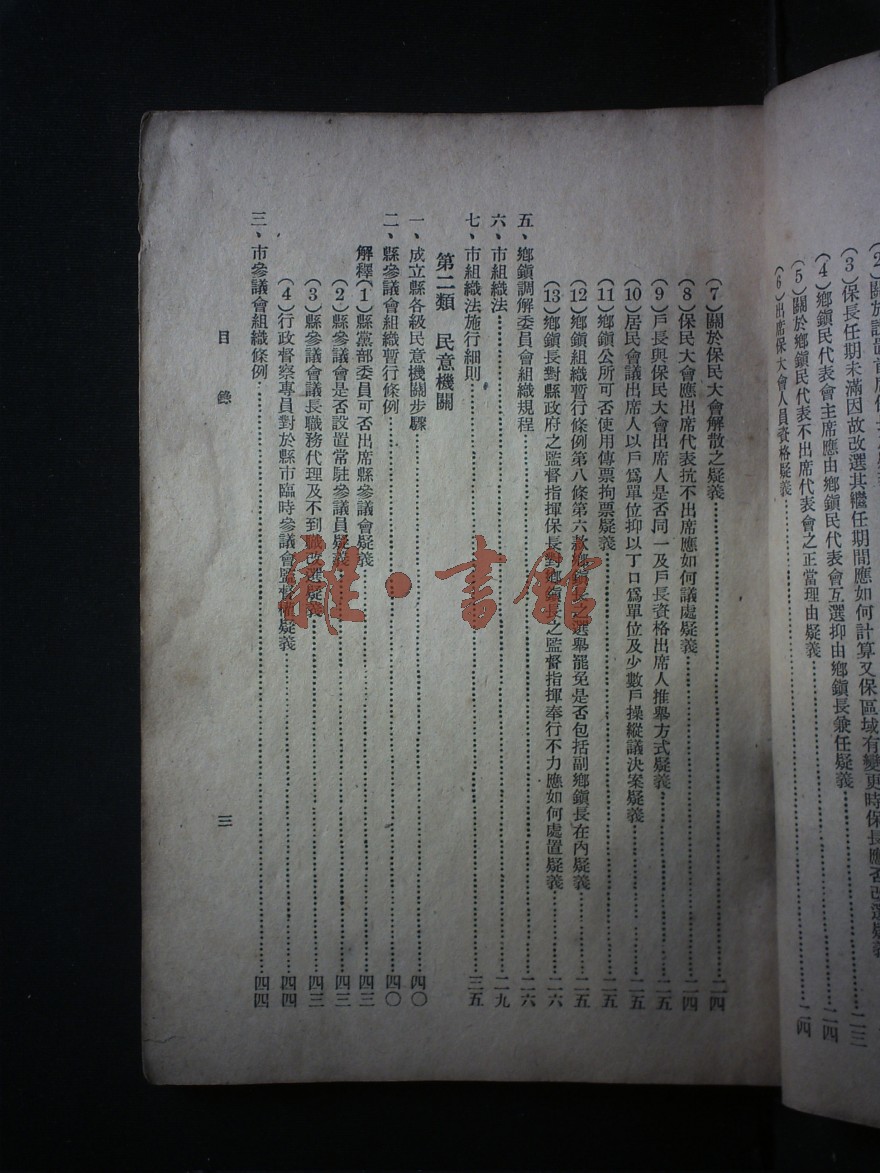 (3)保長任期未滿因故改選其繼任期間應如何計算又保區域有變更時保長應否改選疑義……二三
(4)鄉鎭民代表會主席應由鄉鎭民代表會互選抑由鄉鎭長兼任疑義……二四
(5)關於鄉鎭民代表不出席代表會之正當理由疑義……二四
(6)出席保大會人員資格疑義……
(7)關於保民大會解散之疑義……二四
(8)保民大會應出席代表抗不出席應如何議處疑義……二四
(9)戶長與保民大會出席人是否同一及戶長資格出席人推舉方式疑義……二五
(10)居民會議出席人以戶爲單位抑以丁口爲單位及少數戶操縱議決案疑義……二五
(11)鄉鎭公所可否使用傳票拘票疑義……二五
(12)鄉鎭組織暫行條例第八條第六款鄉鎭長之選舉罷免是否包括副鄉鎭長在內疑義……二五
(13)鄉鎭長對縣政府之監督指揮保長對鄉鎭長之監督指揮奉行不力應如何處置疑義……二六
五、鄉鎭調解委員會組織規程……二六
六、市組織法……二九
七、市組織法施行細則……三五
第二類 民意機關
一、成立縣各級民意機關步驟……四〇
二、縣參議會組織暫行條例……四〇
解釋(1)縣黨部委員可否出席縣參議會疑義……四三
(2)縣參議會是否設置常駐參議員疑義……四三
(3)縣參議會議長職務代理及不到職改選疑義……四三
(4)行政督察專員對於縣市臨時參議會監督權疑義……四四
三、市參議會組織條例……四四
目錄 三
羅·書館